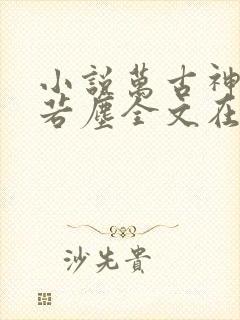 小說萬古神
若塵全文在
沙先貴